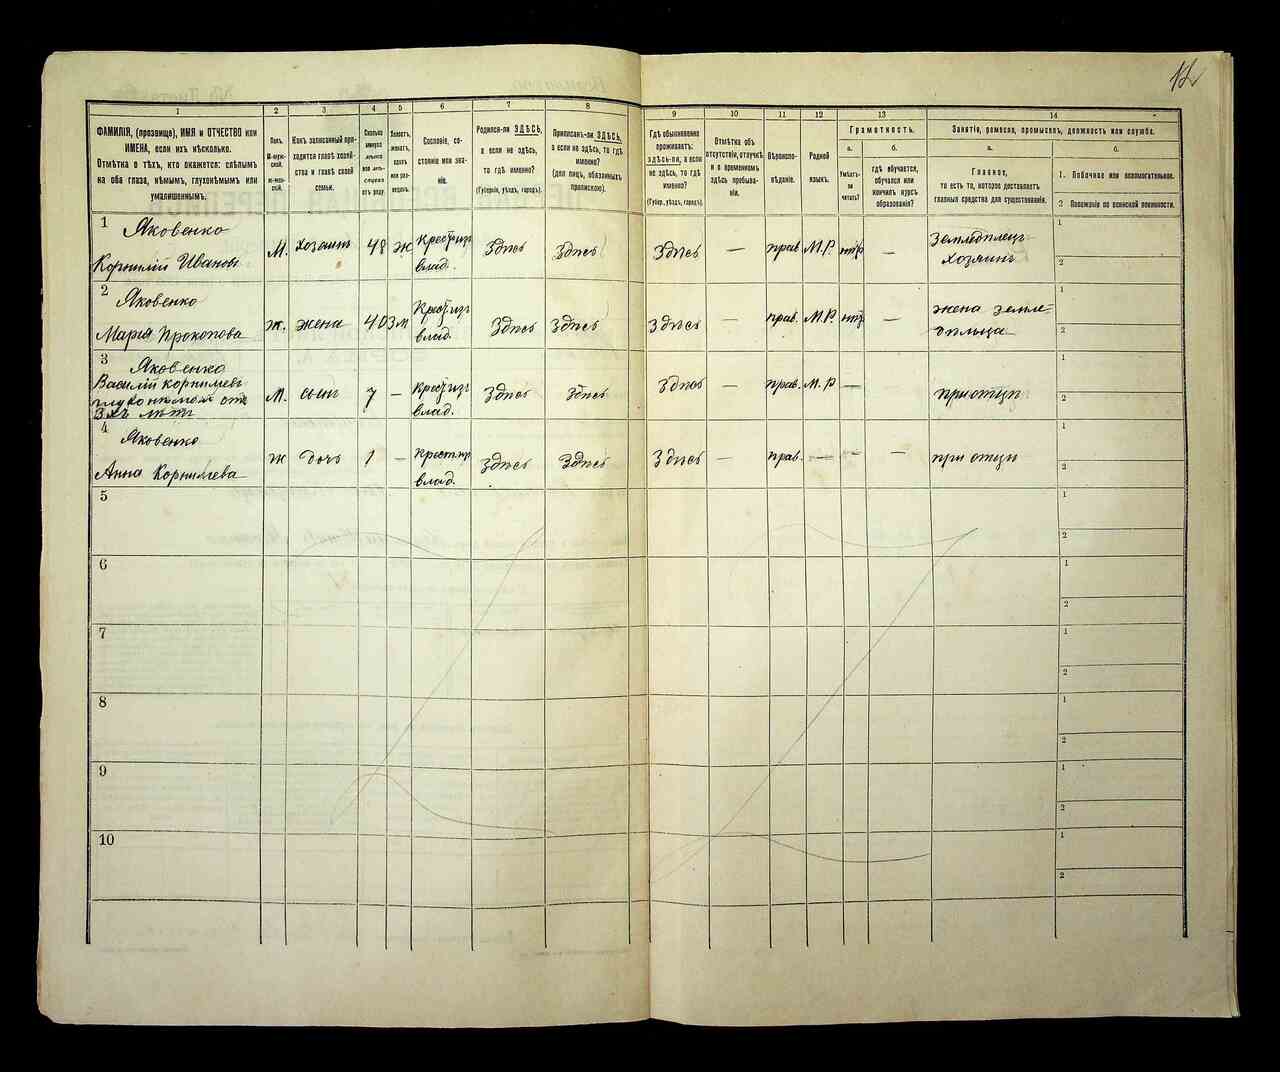 12
1 2 3 4 5 6 7 8 9 10 11 12 13 14
ФАМИЛІЯ, (прозвище), ИМЯ и ОТЧЕСТВО или
ИМЕНА, если ихъ нѣсколько.
Отмѣтка о тѣхъ, кто окажется: слѣпымъ
на оба глаза, нѣмымъ, глухонѣмымъ или
умалишеннымъ.
Полъ.
М-мужской.
Ж-женскій.
Какъ записанный приходится
главѣ хозяйства
и главѣ своей
семьи.
Сколько
минуло
лѣтъ
или мѣсяцевъ
отъ роду.
Холостъ,
женатъ,
вдовъ
или разведенъ.
Сословіе, состояніе
или званіе.
Родился-ли ЗДѢСЬ,
а если не здѣсь,
то гдѣ именно?
(Губернія, уѣздъ, городъ).
Приписанъ-ли ЗДѢСЬ,
а если не здѣсь, то гдѣ
именно?
(для лицъ, обязанныхъ
припискою).
Гдѣ обыкновенно
проживаетъ:
здѣсь-ли, а если
не здѣсь, то гдѣ
именно?
(Губер., уѣздъ, городъ).
Отмѣтка объ
отсутствіи, отлучкѣ
и о временномъ
здѣсь пребываніи.
Вѣроисповѣданіе.
Родной
языкъ.
Грамотность.
а.
Умѣетъ-ли
читать?
б.
гдѣ обучается,
обучался или
кончилъ курсъ
образованія?
Занятіе, ремесло, промыселъ, должность или служба.
а.
Главное,
то есть то, которое доставляетъ
главныя средства для существованія.
б.
1. Побочное или вспомогательное.
2 Положеніе по воинской повинности.
1 Яковенко
Корнилій Ивановъ М. хозяинъ 48 ж Крест. из влад. Здѣсь Здѣсь Здѣсь — прав. М.Р. — Земледѣлецъ хозяинъ 1 2
2 Яковенко
Марія Прокопова ж. жена 40 зм Крест. из влад. Здѣсь Здѣсь Здѣсь — прав. М.Р. — жена земледѣльца 1 2
3 Яковенко
Василій Корнилiевъ
глухонѣмой отъ
3хъ лѣтъ М. сынъ 7 — Крест. из влад. Здѣсь Здѣсь Здѣсь — прав. М.Р. — при отцѣ 1 2
4 Яковенко
Анна Корнилiева ж дочь 1 — Крест. из влад. Здѣсь Здѣсь Здѣсь — прав. — — — при отцѣ 1 2
5 1 2
6 1 2
7 1 2
8 1 2
9 1 2
10 1 2